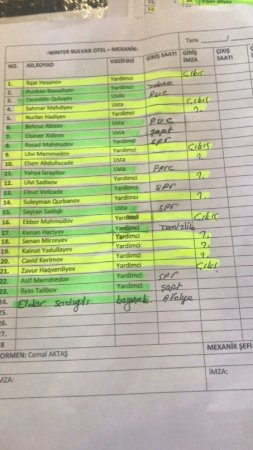 Tarix ___/___/
-WINTER BULVAR OTEL – MEXANİK-
NO. AD,SOYAD vəzifəsi GİRİŞ SAATI GİRİŞ İMZA ÇIKIŞ SAATI
1. İlqar Hesanov Yardimci Çıkış
2. Yardimci
3. Tamiddin Quluyev Usta
4. Sahmar Mehdiyev Yardimci Çıkış
5. Nurlan Hadiyev Yardimci ?.
6. Behruz Abizov Usta
7. Elsever Xidirov Usta şapt
8. Resad Mahmudov Yardimci spr
9. Ulvi Memmedov Yardimci Çıkış
10. Elsen Abdullazade Usta ?.
11. Yahya İsrayilov Usta
12. Ulvi Sadixov Yardimci ?.
13. Elnur Velizade Yardimci spr
14. Suleyman Qurbanov Yardimci ?.
15. Seyran Sadiqlı Usta spr
16. Ekber Mahmudov Yardimci Çıkış
17. Kenan Haciyev Yardimci temizlik
18. Senan Mirzeyev Yardimci ?.
19. Kainat Yadullayev Yardimci ?.
20. Cavid Kerimov Yardimci ?.
21. Zavur Haqverdiyev Yardimci Çıkış
22. Asif Memmedov Yardimci spr
23. İlyas Talibov Yardimci şapt
24. Eldar sadıqlı
25.
26.
27.
28
FORMEN: Cemal AKTAŞ MEXANİK ŞEFİ
İMZA: İMZA: